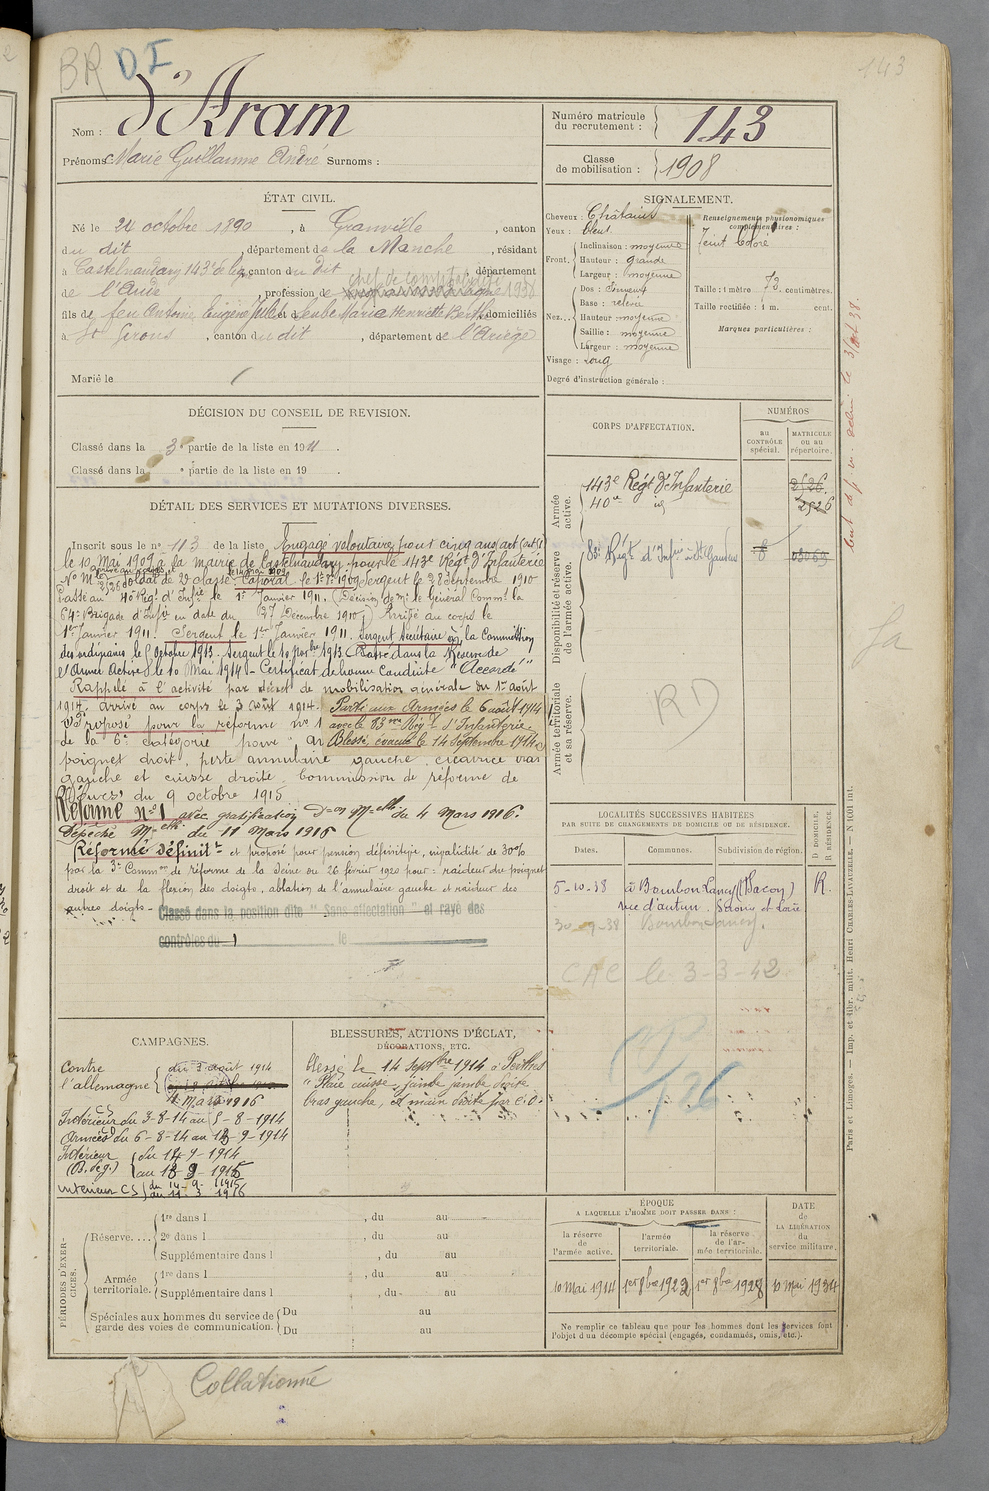 BR DI
143
Nom : d'Aram
Prénoms : Marie Guillaume André Surnoms :
Numéro matricule du recrutement : 143
Classe de mobilisation : 1908
ÉTAT CIVIL.
Né le 24 octobre 1890, à Granville, canton
du dit, département de la Manche, résidant
à Castelnaudary 143e de ligne, canton du dit, département
de l'Aude, profession de chef de comptabilité 1938
fils de feu Antoine Eugène Jules et de Marie Henriette Berthe domiciliés
à St Girons, canton du dit, département de l'Ariège
Marié le
SIGNALEMENT.
Cheveux : Châtains
Yeux : bleus
Front. Inclinaison : moyenne
Hauteur : grande
Largeur : moyenne
Nez. Dos : sinueux
Base : relevée
Hauteur : moyenne
Saillie : moyenne
Largeur : moyenne
Visage : long
Renseignements physionomiques complémentaires :
Teint coloré
Taille : 1 mètre 73 centimètres.
Taille rectifiée : 1 m. cent.
Marques particulières :
Degré d'instruction générale :
DÉCISION DU CONSEIL DE REVISION.
Classé dans la 3e partie de la liste en 1911
Classé dans la e partie de la liste en 19 .
CORPS D'AFFECTATION.
NUMÉROS
au CONTRÔLE spécial.
MATRICULE ou au répertoire.
Armée active.
143e Régt d'Infanterie 2526
40e id 2526
Disponibilité et réserve de l'armée active.
83e Régt d'Infie St Gaudens 8
Armée territoriale et sa réserve.
RD
DÉTAIL DES SERVICES ET MUTATIONS DIVERSES.
Inscrit sous le n° 113 de la liste Engagé volontaire pour cinq ans
le 10 Mai 1909 à la mairie de Castelnaudary pour le 143e Régt d'Infanterie
soldat de 2e classe. Caporal le 1909 Sergent le 28 septembre 1910
Passé au 40e Régt d'Infie le 1er Janvier 1911. (Décision de Mr le Général Commt la
64e Brigade d'Infie en date du 27 Décembre 1910) Arrivé au corps le
1er Janvier 1911. Sergent le 1er Janvier 1911. Sergent Secrétaire à la Commission
des ordinaires le 5 Octobre 1913. Sergent le 10 9bre 1913. Passé dans la Réserve de
l'Armée Active le 10 Mai 1914 - Certificat de bonne Conduite "Accordé"
Rappelé à l'activité par décret de mobilisation générale du 1er août
1914. Arrivé au corps le 3 août 1914. Parti aux Armées le 6 août 1914
Proposé pour la réforme n° 1 avec le 83eme Régt d'Infanterie.
de la 6e catégorie pour Blessé, évacué le 14 Septembre 1914
poignet droit, perte annulaire gauche, cicatrice bras
gauche et cuisse droite. Commission de réforme de
du 9 octobre 1915
Réformé n° 1 avec gratification Don Melle du 4 Mars 1916.
Dépêche Melle du 11 Mars 1916
Réformé définitt et proposé pour pension définitive, invalidité de 30%
par la 3e Common de réforme de la Seine du 26 février 1920 pour : raideur du poignet
droit et de la flexion des doigts, ablation de l'annulaire gauche et raideur des
autres doigts.
Classé dans la position dite "Sans affectation" et rayé des
contrôles du 1 le
LOCALITÉS SUCCESSIVES HABITÉES
PAR SUITE DE CHANGEMENTS DE DOMICILE OU DE RÉSIDENCE.
Dates. Communes. Subdivision de région.
D DOMICILE, R RÉSIDENCE
5-10-38 à Bourbon Lancy R.
rue d'Autun. Saône et Loire
30-9-38 Bourbon Lancy.
CAC le 3-3-42
CAMPAGNES.
Contre l'allemagne du 3 août 1914
4 Mars 1916
Intérieur CS du 3-8-14 au 5-8-1914
Armées du 6-8-14 au 13-9-1914
Intérieur (B. de g.) du 14-9-1914
au 13-9-1915
Intérieur CS du 14-9-1915
au 11 3 1916
BLESSURES, ACTIONS D'ÉCLAT, DÉCORATIONS, ETC.
blessé le 14 Septbre 1914 à Perthes
"Plaie cuisse, jambe droite
bras gauche, et main droite par é.o.
PÉRIODES D'EXERCICES.
Réserve.... 1re dans l , du au
2e dans l , du au
Supplémentaire dans l , du au
Armée territoriale. 1re dans l , du au
Supplémentaire dans l , du au
Spéciales aux hommes du service de garde des voies de communication. Du au
Du au
ÉPOQUE A LAQUELLE L'HOMME DOIT PASSER DANS :
la réserve de l'armée active. l'armée territoriale. la réserve de l'armée territoriale.
DATE de LA LIBÉRATION du service militaire.
10 Mai 1914 1er 8bre 1922 1er 8bre 1928 10 Mai 1934
Ne remplir ce tableau que pour les hommes dont les services font
l'objet d'un décompte spécial (engagés, condamnés, omis, etc.).
Paris et Limoges. — Imp. et libr. milit. Henri CHARLES-LAVAUZELLE.
Collationné